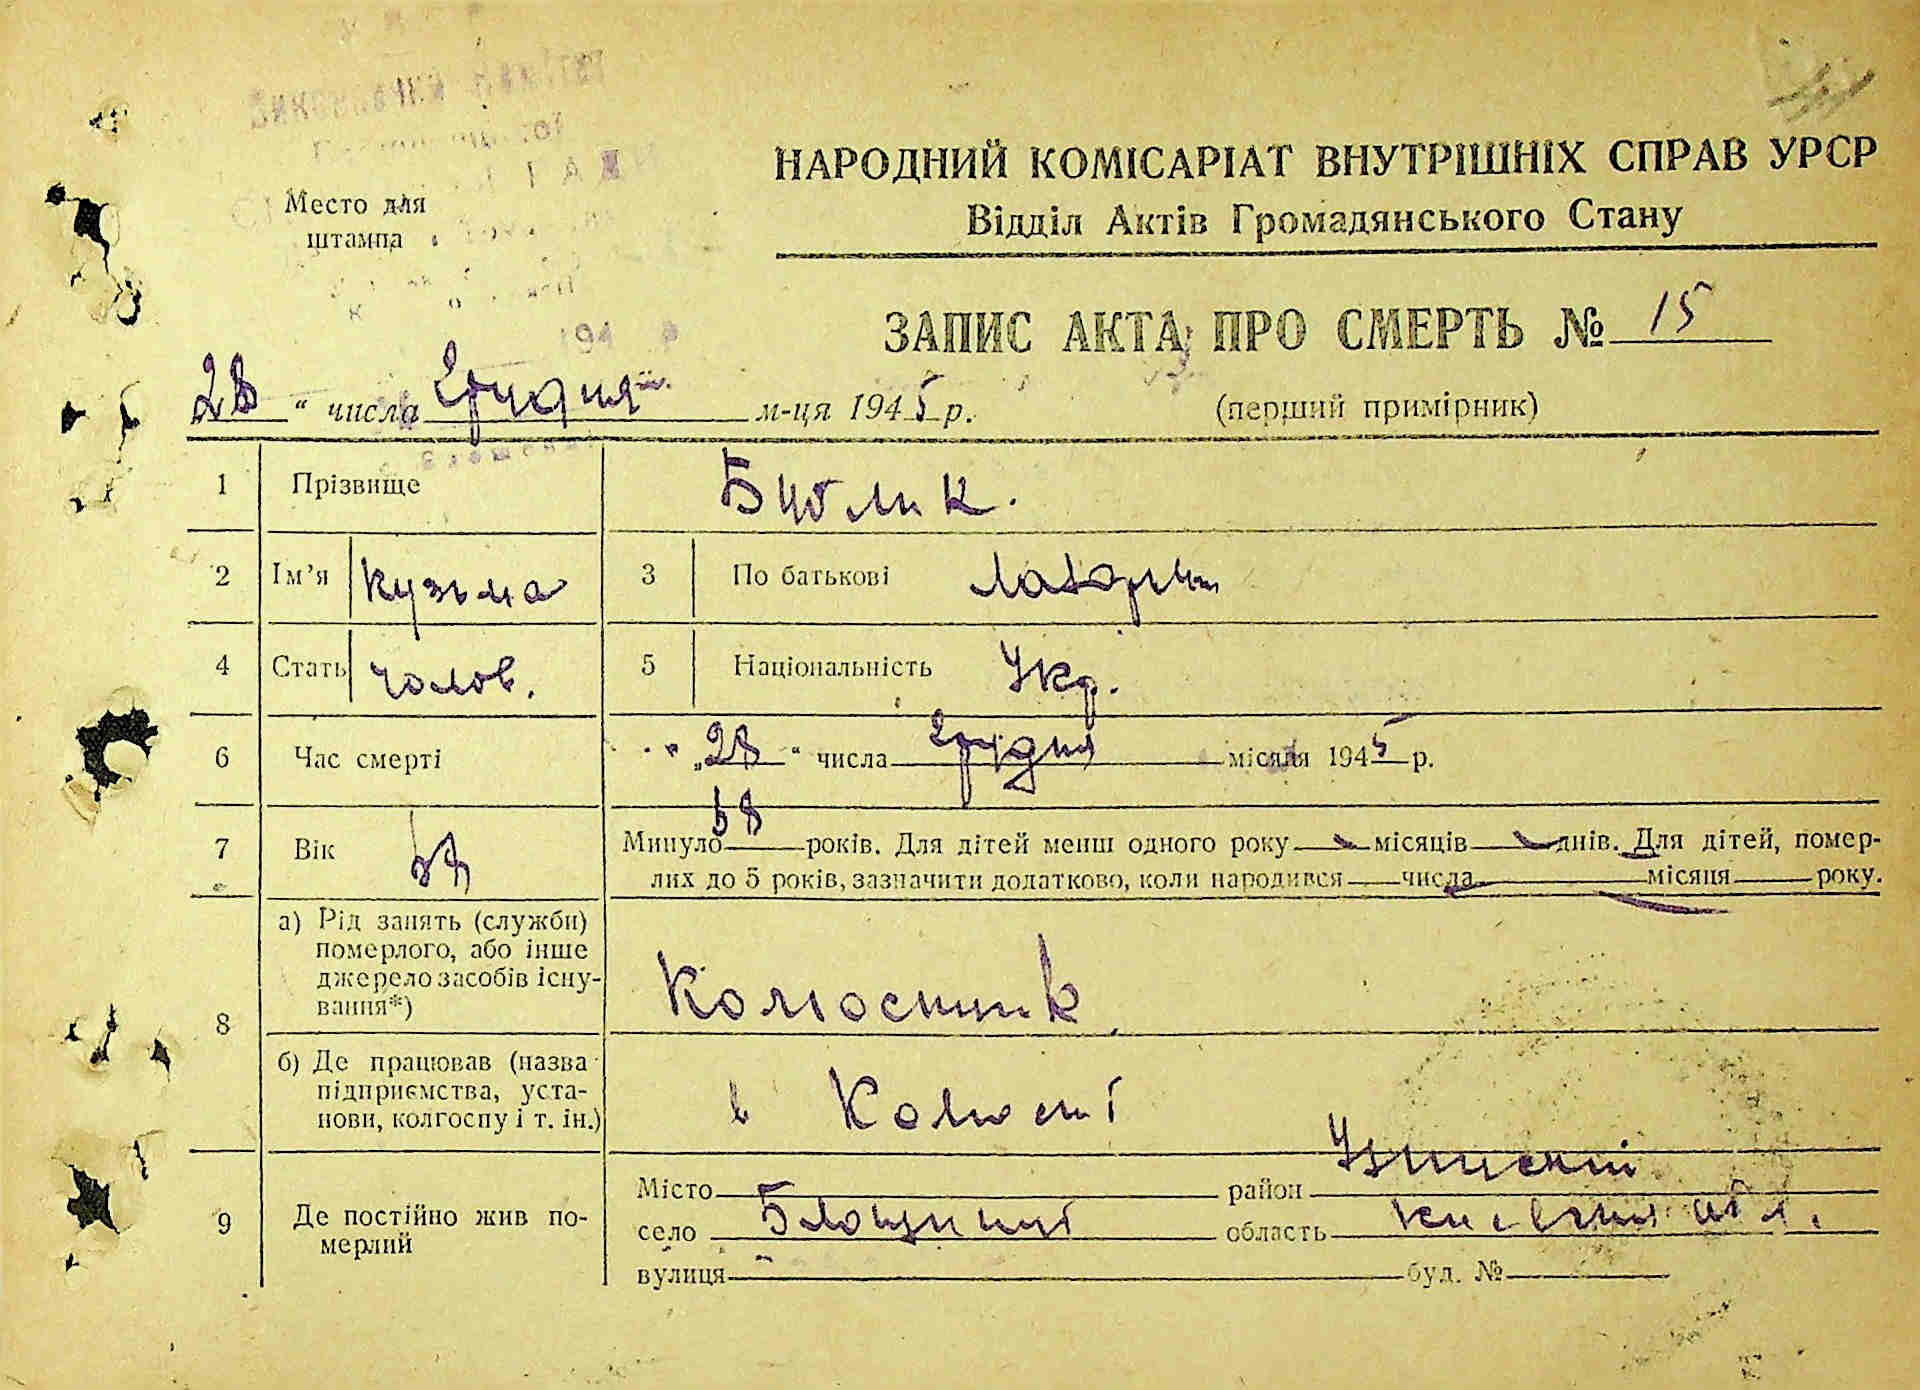 НАРОДНИЙ КОМІСАРІАТ ВНУТРІШНІХ СПРАВ УРСР
Відділ Актів Громадянського Стану
Место для
штампа
ЗАПИС АКТА ПРО СМЕРТЬ № 15
28 “ числа грудня м-ця 1945 р.
(перший примірник)
1 Прізвище Бублик.
2 Ім’я Кузьма 3 По батькові
4 Стать чолов. 5 Національність Укр.
6 Час смерті „28 “ числа грудня місяця 1945 р.
7 Вік 68 Минуло 68 років. Для дітей менш одного року місяців днів. Для дітей, помер-
лих до 5 років, зазначити додатково, коли народився числа місяця року.
8 а) Рід занять (служби)
померлого, або інше
джерело засобів існу-
вання*)
Колгоспник
б) Де працював (назва
підприємства, уста-
нови, колгоспу і т. ін.)
в Колгоспі
9 Де постійно жив по-
мерлий
Місто район Узинський
село Блощинці область Київська обл.
вулиця буд. №